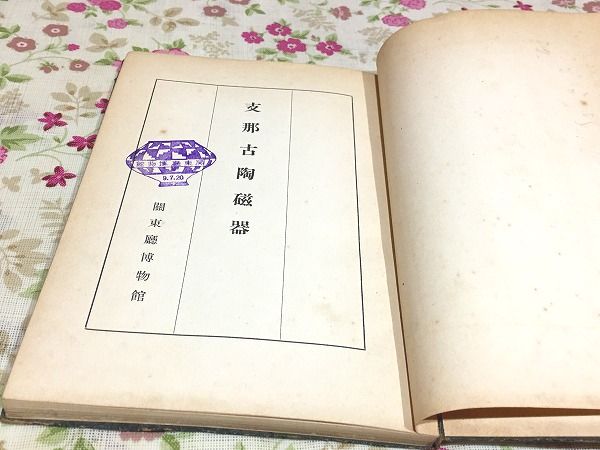 支那古陶磁器
關東廳博物館
關東廳博物館
9.7.20